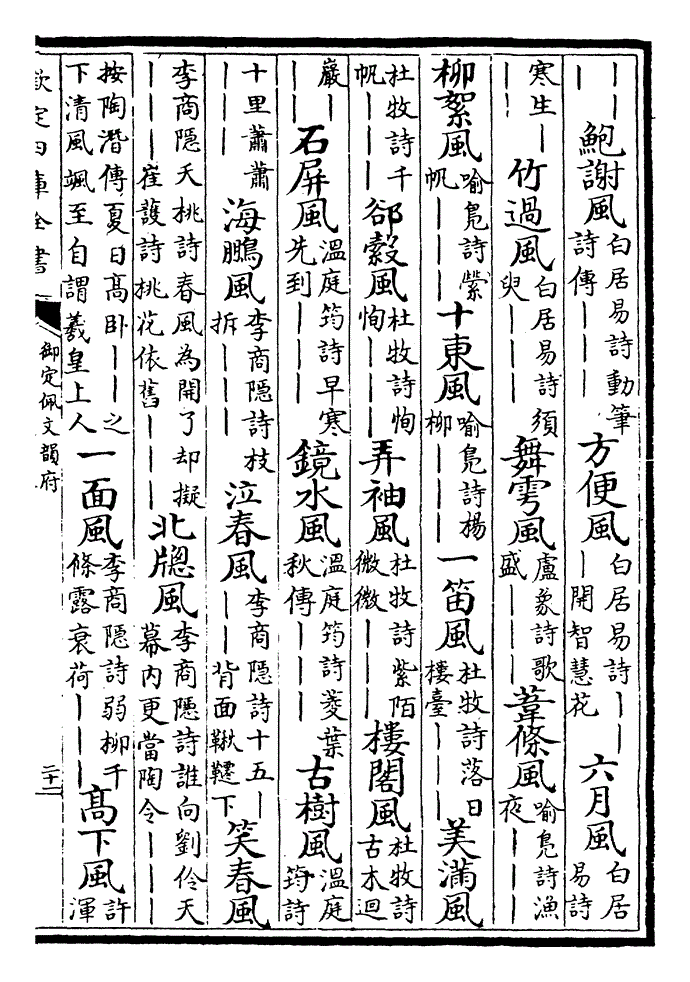 ｜｜｜鮑謝風白居易詩動筆詩傳｜｜｜方便風白居易詩｜｜｜開智慧花六月風白居易詩
寒生｜｜｜竹過風白居易詩須臾｜｜｜舞雩風盧象詩歌盛｜｜｜葦條風喻鳧詩漁夜｜｜｜
柳絮風喻鳧詩縈帆｜｜｜十東風喻鳧詩楊柳｜｜｜一笛風杜牧詩落日樓臺｜｜｜美滿風
杜牧詩千帆｜｜｜郤縠風杜牧詩恂恂｜｜｜弄袖風杜牧詩紫陌微微｜｜｜樓閣風杜牧詩古木迴
巖｜｜｜石屏風溫庭筠詩早寒先到｜｜｜鏡水風溫庭筠詩菱葉秋傳｜｜｜古樹風溫庭筠詩
十里蕭蕭｜｜｜海鵬風李商隱詩枝拆｜｜｜泣春風李商隱詩十五｜｜｜背面鞦韆下笑春風
李商隱夭桃詩春風為開了却擬｜｜｜崔護詩桃花依舊｜｜｜北牕風李商隱詩誰向劉伶天幕内更當陶令｜｜｜
按陶潛傳夏日高卧｜｜之下清風颯至自謂羲皇上人一面風李商隱詩弱柳千條露衰荷｜｜｜高下風許渾
欽定四庫全書
御定佩文韻府
二十二